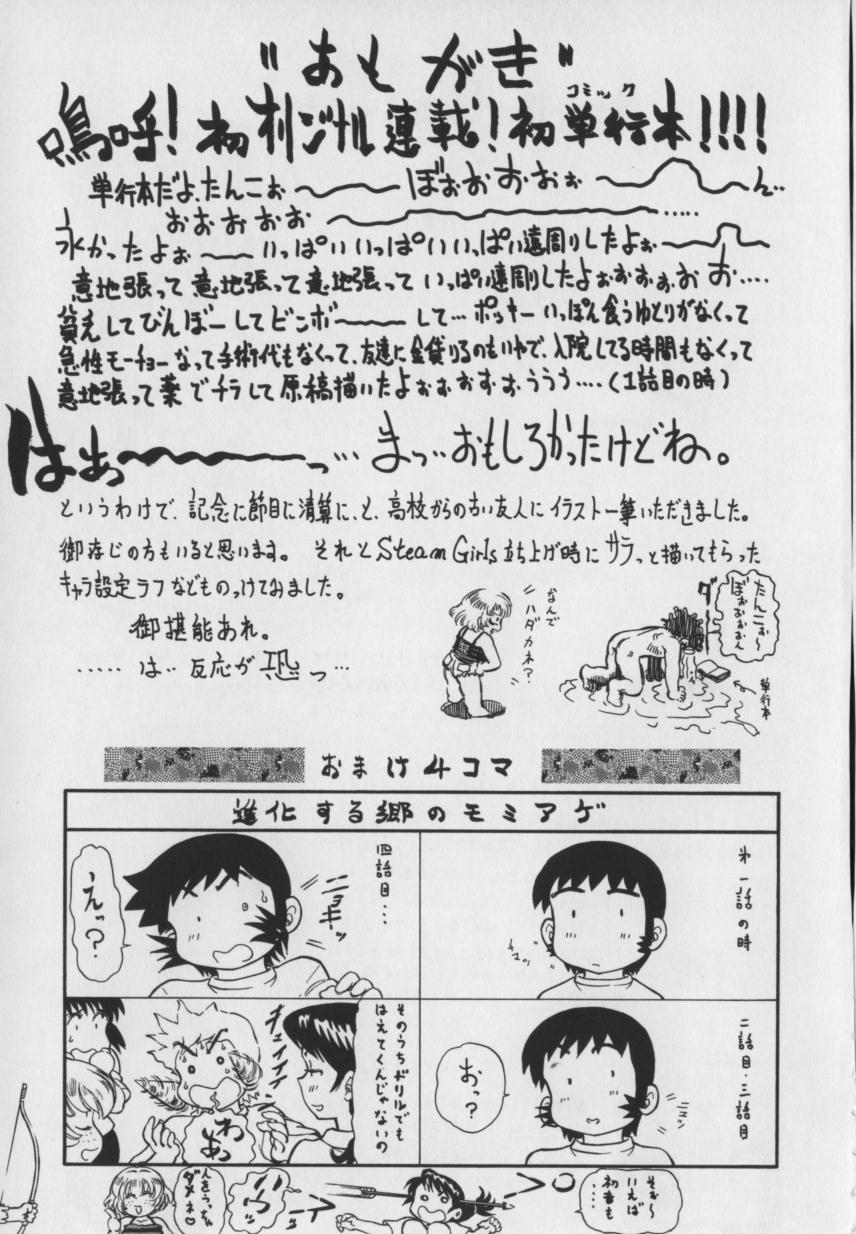 "あもがき"
嗚呼!初オリジナル連載!初単行本!!!!
コミック
単行本だよ、たんこぉ〜〜ぼぉぉおおぉぉ〜〜ん‥
おおぉおお〜〜.....
永かったよぉ〜〜いっぱいいっぱいいっぱい遠周りしたよぉ〜〜
意地張って意地張って意地張っていっぱい遠周りしたよぉぉぉぉぉお....
貧乏してびんぼーしてビンボ〜〜して…ポッキーいっぽん食うゆとりがなくって
急性モーチョーなって手術代もなくって、友達に金貸りるのもいやで、入院してる時間もなくって
意地張って薬でチラして原稿描いたよぉぉぉぉぉううう....(1話目の時)
はあっ〜〜〜っ…まっ…おもしろかったけどね。
というわけで、記念に節目に清算に、と、高校からの古い友人にイラスト一筆いただきました。
御存じの方もいると思います。それとSteam Girls立ち上げ時にサラっと描いてもらった
キャラ設定ラフなどものっけてみました。
御堪能あれ。
......は‥反応が恐っ…
なんで
ハダカネ?
ダー
たんこぉ〜
ぼぉぉぉぉん
単行本
おまけ4コマ
進化する郷のモミアゲ
オ一話の時
チマッ
二話目・三話目
ニュッ
おっ?
四話目…
ニョキッ
えっ?
そのうちドリルでも
はえてくんじゃないの
チュイイイ
わあっ
そぉ〜
いえば
初音も
…
人をうっちゃ
ダメネ♡